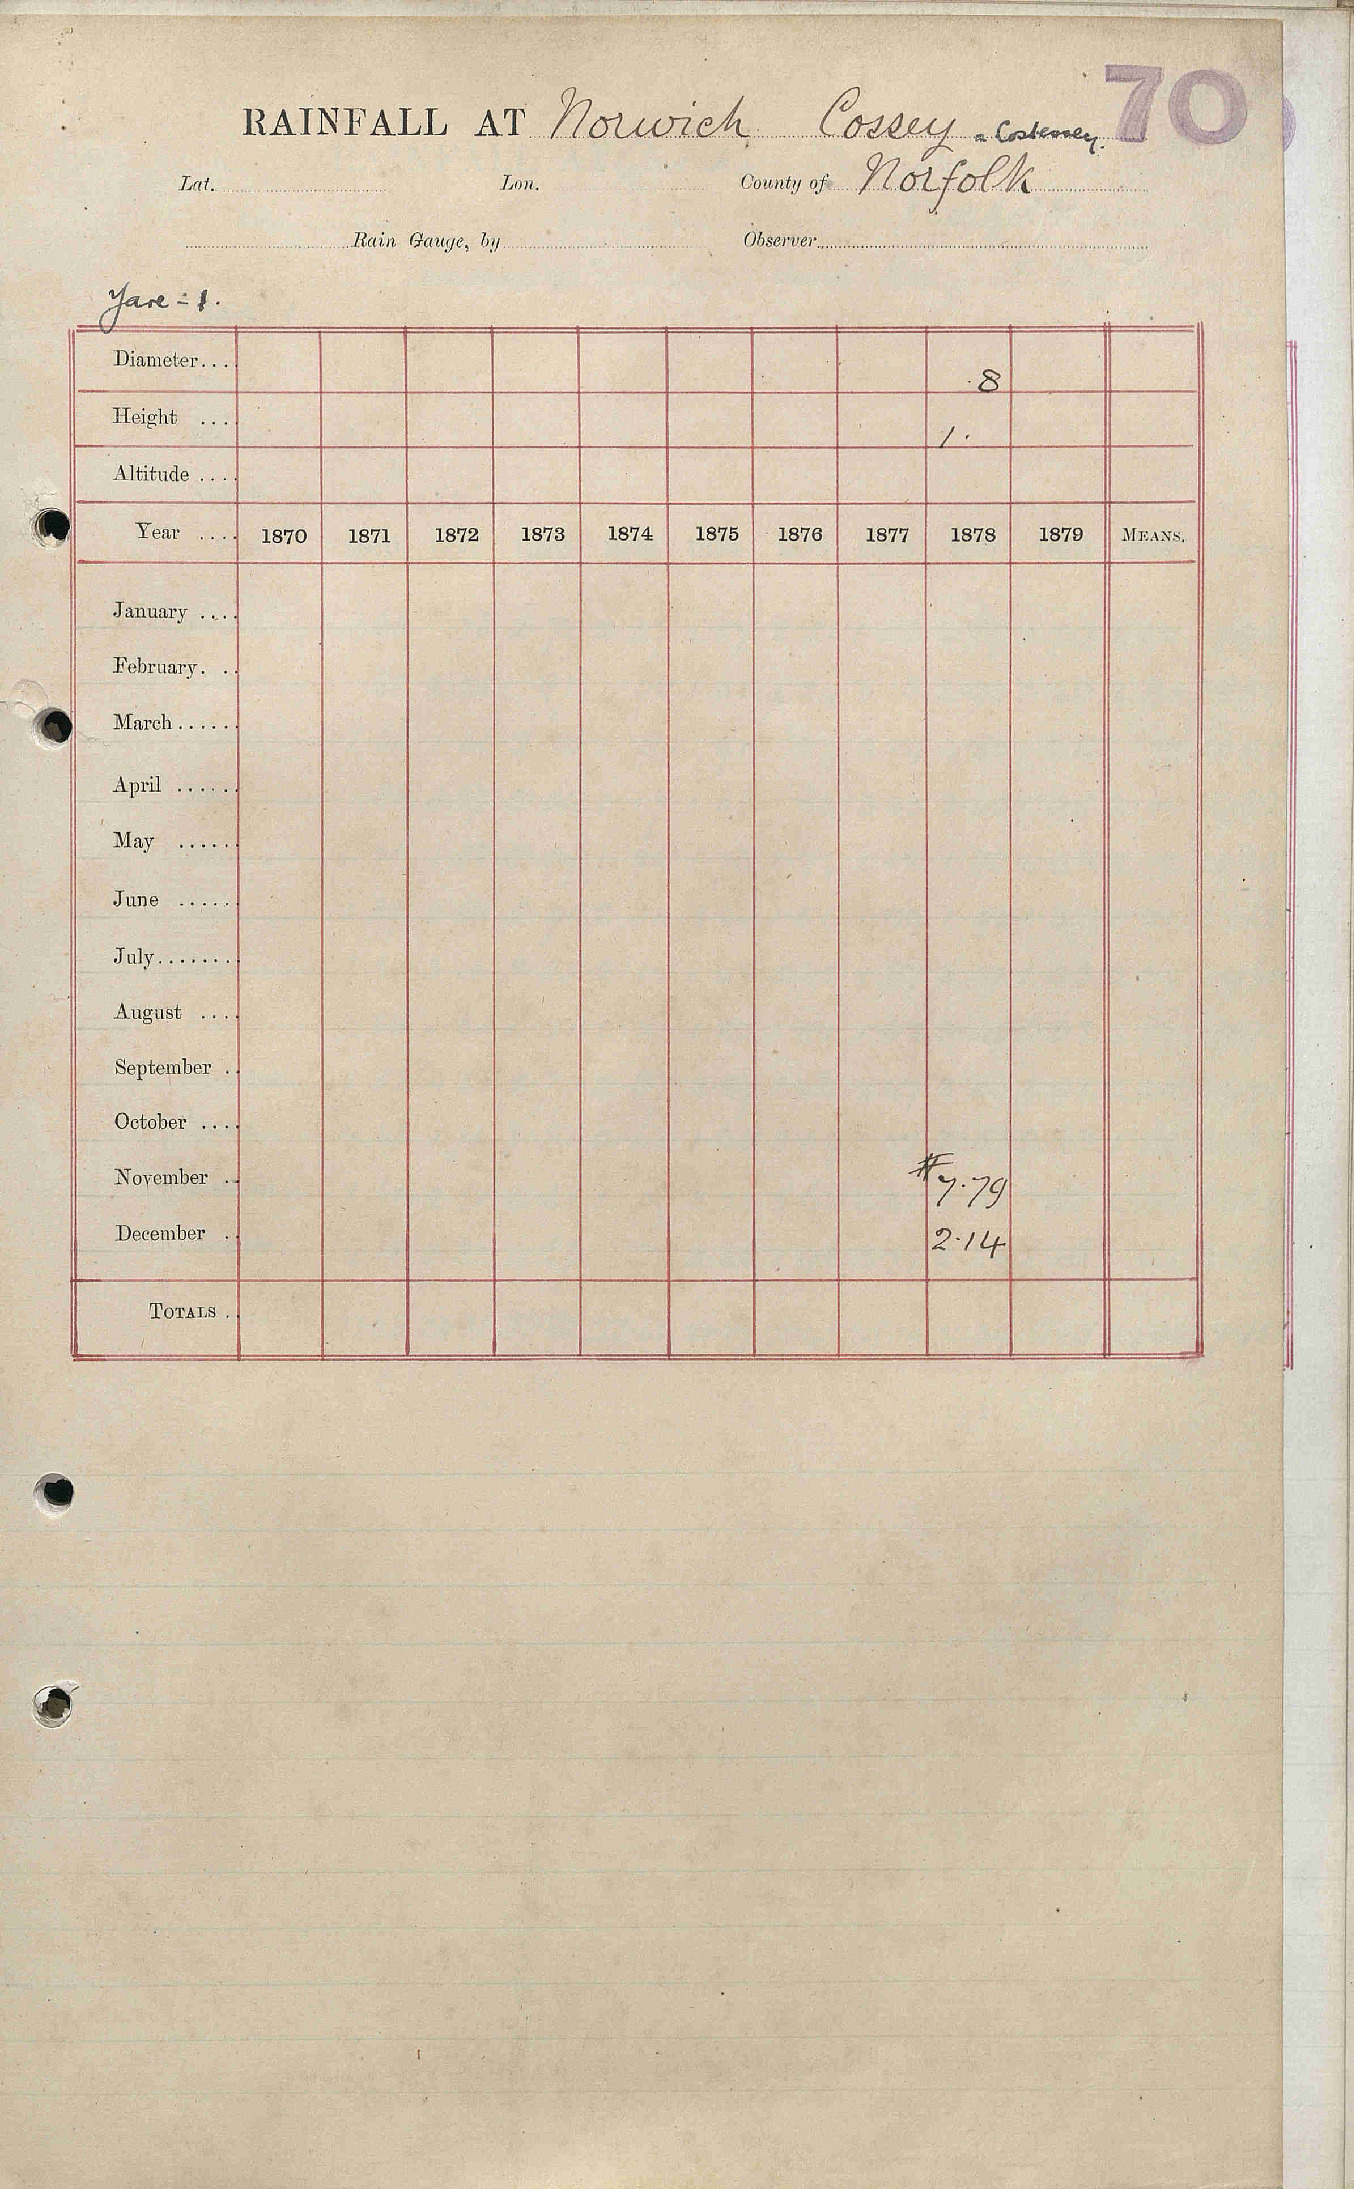 70
RAINFALL AT Norwich Cossey = Costessey.
Lat. Lon. County of Norfolk
Rain Gauge, by Observer
Yare = 1.
Diameter... 8
Height ... 1.
Altitude ....
Year .... 1870 1871 1872 1873 1874 1875 1876 1877 1878 1879 MEANS.
January ....
February. ..
March ......
April ......
May .....
June .....
July........
August ....
September ..
October ....
November .. #7.79
December .. 2.14
TOTALS ..